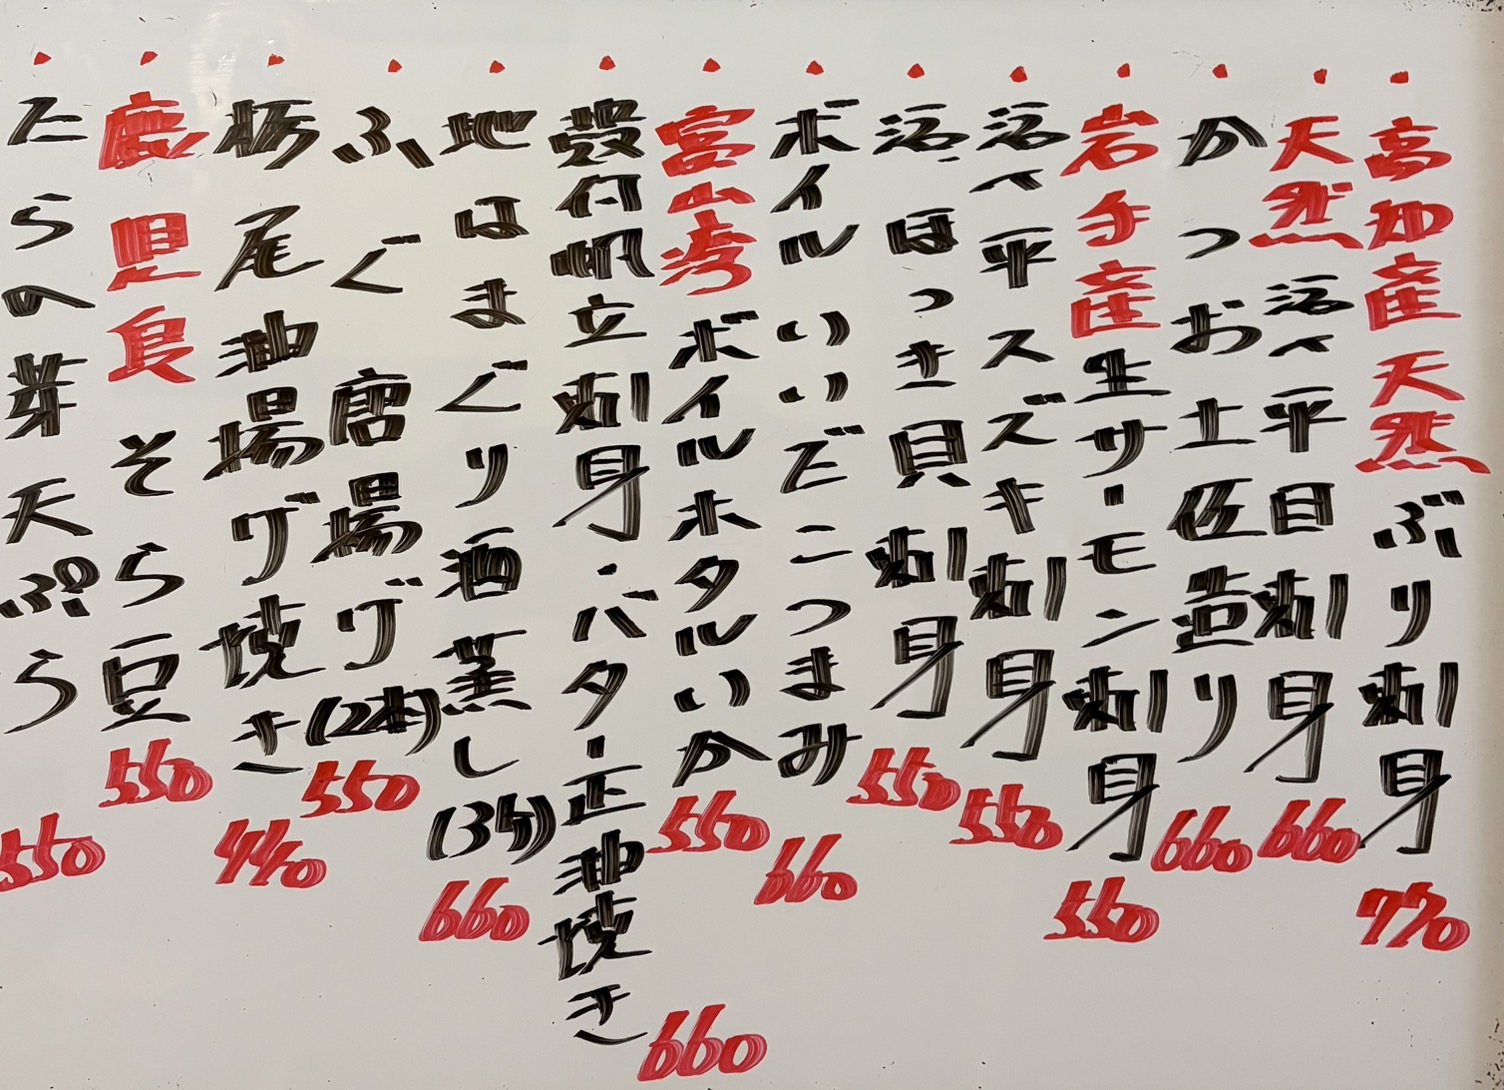 ・高知産天然ぶり刺身 770
・天然活〆平目刺身 660
・かつお土佐造り 660
・岩手産生サーモン刺身 550
・活〆平スズキ刺身 550
・活ほっき貝刺身 550
・ボイルいいだこつまみ 660
・富山湾ボイルホタルいか 550
・殻付帆立刺身・バター正油焼き 660
・地はまぐり酒蒸し(3ケ) 660
・ふぐ唐揚げ(2本) 550
・栃尾油揚げ焼き 440
・鹿児島そら豆 550
・たらの芽天ぷら 550